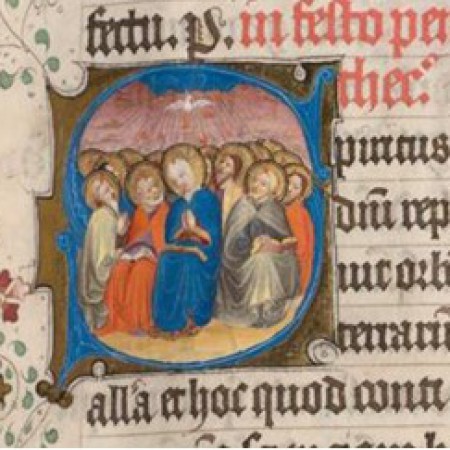 fectu. P. in festo pen
thec'.
Spiritus
dñi rep
uit orbē
terrarū
all'a et hoc quod conti